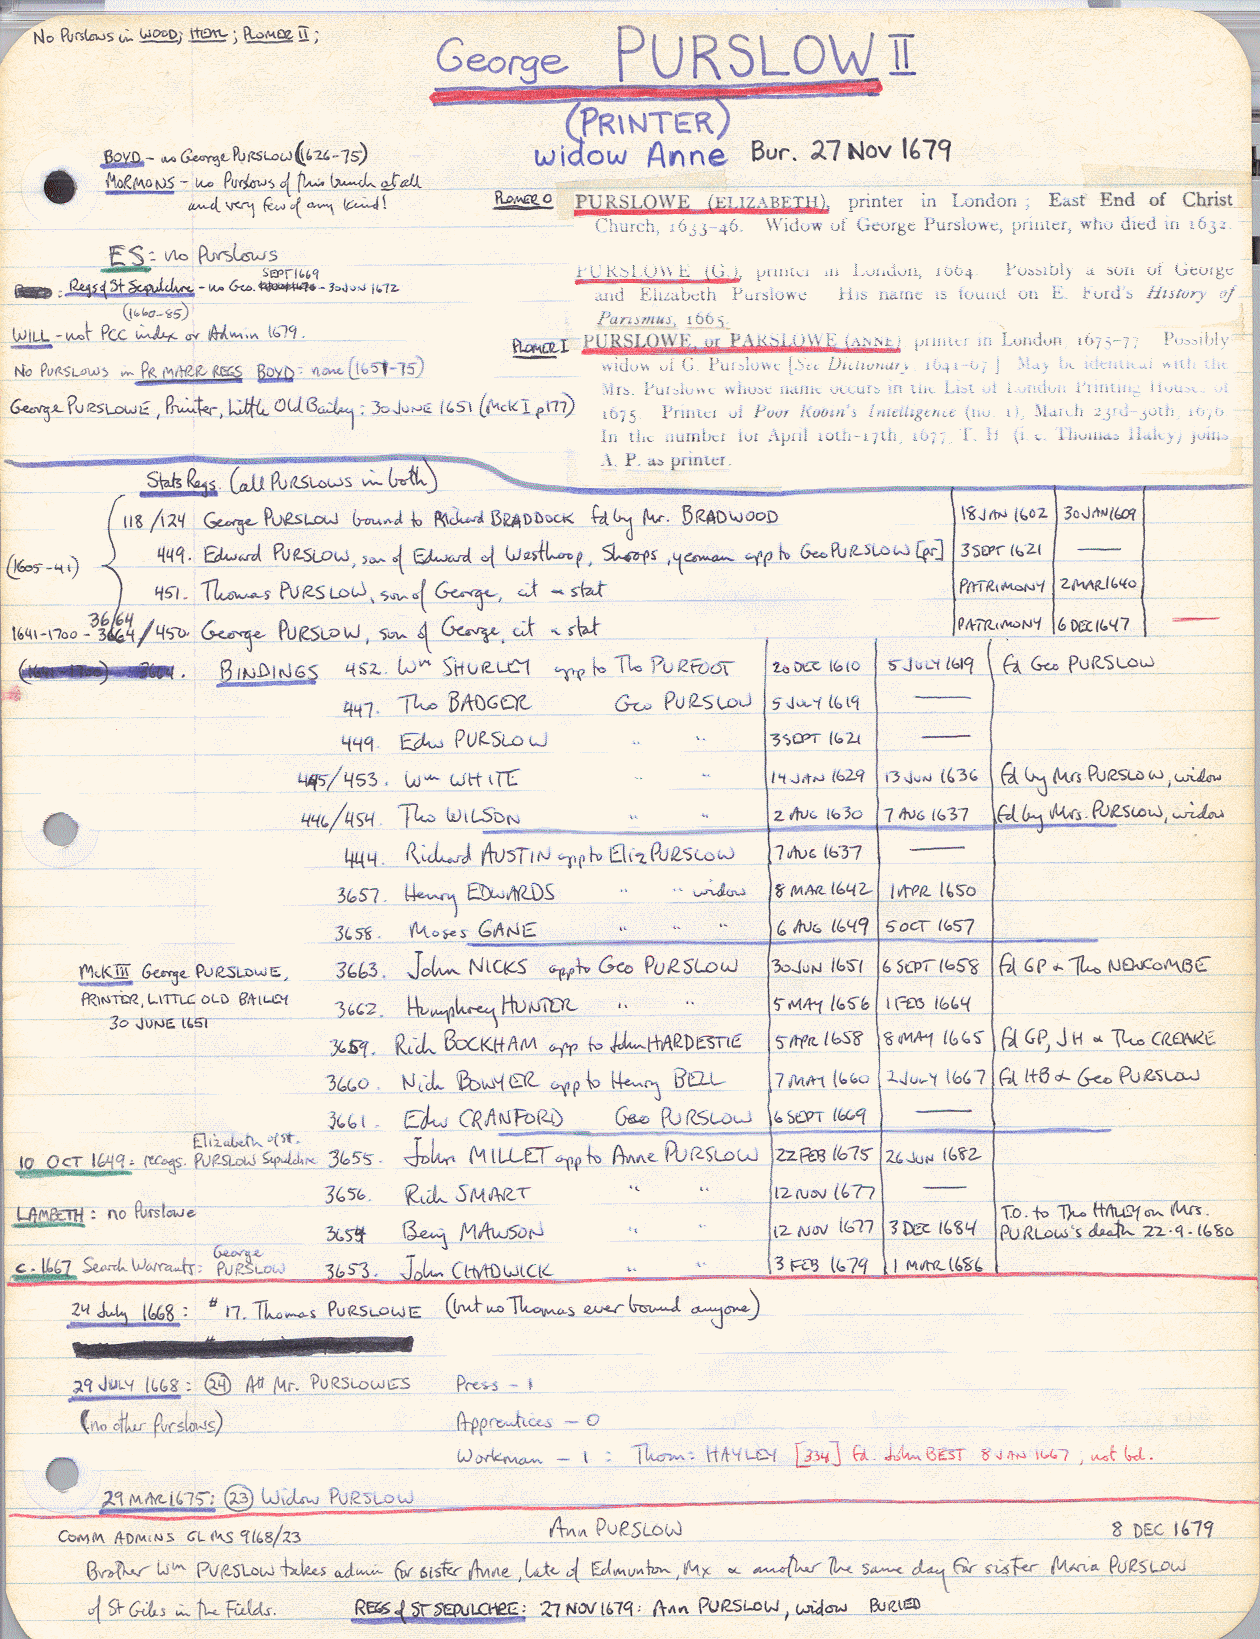 No Purslows in WOOD; HEAL; PLOMER II;
George PURSLOW II
(PRINTER)
widow Anne Bur. 27 Nov 1679
BOYD - no George PURSLOW (1626-75)
MORMONS - no Purslows of this bunch at all
and very few of any kind!
PLOMER 0 PURSLOWE (ELIZABETH), printer in London; East End of Christ
Church, 1633-46. Widow of George Purslowe, printer, who died in 1632.
ES: no Purslows
PURSLOWE (G.), printer in London, 1664. Possibly a son of George
and Elizabeth Purslowe. His name is found on E. Ford's History of
Parismus, 1665.
SEPT 1669
: Regs of St Sepulchre - no Geo. - 30 JUN 1672
(1660-85)
WILL - not PCC index or Admin 1679.
PLOMER I PURSLOWE, or PARSLOWE (ANNE) printer in London, 1675-77. Possibly
widow of G. Purslowe [See Dictionary 1641-67.] May be identical with the
Mrs. Purslowe whose name occurs in the List of London Printing Houses of
1675. Printer of Poor Robin's Intelligence (no. 1), March 23rd-30th, 1676.
In the number for April 10th-17th, 1677, T. H. (i.e. Thomas Haley) joins
A. P. as printer.
No PURSLOWS in PR MARR REGS BOYD: none (1651-75)
George PURSLOWE, Printer, Little Old Bailey: 30 JUNE 1651 (McK I p177)
Stats Regs. (all PURSLOWS in both)
(1605-41)
118/124 George PURSLOW bound to Richard BRADDOCK fd by Mr. BRADWOOD 18 JAN 1602 30 JAN 1609
449. Edward PURSLOW, son of Edward of Westhoop, Shrops, yeoman app to Geo PURSLOW [pr] 3 SEPT 1621 —
451. Thomas PURSLOW, son of George, cit & stat PATRIMONY 2 MAR 1640
36/64
1641-1700 - 3664/450. George PURSLOW, son of George, cit & stat PATRIMONY 6 DEC 1647 —
BINDINGS 452. Wm SHURLEY app to Tho PURFOOT 20 DEC 1610 5 JULY 1619 fd Geo PURSLOW
447. Tho BADGER Geo PURSLOW 5 JULY 1619 —
449. Edw PURSLOW " " 3 SEPT 1621 —
445/453. Wm WHITE " " 14 JAN 1629 13 JUN 1636 fd by Mrs PURSLOW, widow
446/454. Tho WILSON " " 2 AUG 1630 7 AUG 1637 fd by Mrs. PURSLOW, widow
444. Richard AUSTIN app to Eliz PURSLOW 7 AUG 1637 —
3657. Henry EDWARDS " " widow 8 MAR 1642 1 APR 1650
3658. Moses GANE " " " 6 AUG 1649 5 OCT 1657
McK III George PURSLOWE,
PRINTER, LITTLE OLD BAILEY
30 JUNE 1651
3663. John NICKS app to Geo PURSLOW 30 JUN 1651 6 SEPT 1658 fd GP & Tho NEWCOMBE
3662. Humphrey HUNTER " " 5 MAY 1656 1 FEB 1664
3659. Rich BOCKHAM app to John HARDESTIE 5 APR 1658 8 MAY 1665 fd GP, JH & Tho CREAKE
3660. Nich BOWYER app to Henry BELL 7 MAY 1660 2 JULY 1667 fd HB & Geo PURSLOW
3661. Edw CRANFORD Geo PURSLOW 6 SEPT 1669 —
10 OCT 1649: recogs. Elizabeth PURSLOW of St. Sepulchre
3655. John MILLET app to Anne PURSLOW 22 FEB 1675 26 JUN 1682
3656. Rich SMART " " 12 NOV 1677 —
LAMBETH: no Purslowe
3654 Benj MAWSON " " 12 NOV 1677 3 DEC 1684 T.O. to Tho HALEY on Mrs. PURLOW's death 22.9.1680
c. 1667 Search Warrants: George PURSLOW
3653. John CHADWICK " " 3 FEB 1679 1 MAR 1686
24 July 1668: # 17. Thomas PURSLOWE (but no Thomas ever bound anyone)
29 JULY 1668: (24) Att Mr. PURSLOWES Press - 1
(no other Purslows) Apprentices - 0
Workman - 1 : Thom: HAYLEY [334] fd. John BEST 8 JAN 1667; not bd.
29 MAR 1675: (23) Widow PURSLOW
COMM ADMINS GL MS 9168/23 Ann PURSLOW 8 DEC 1679
Brother Wm PURSLOW takes admin for sister Anne, late of Edmunton, Mx & another the same day for sister Maria PURSLOW
of St Giles in the Fields. REGS of ST SEPULCHRE: 27 NOV 1679: Ann PURSLOW, widow BURIED